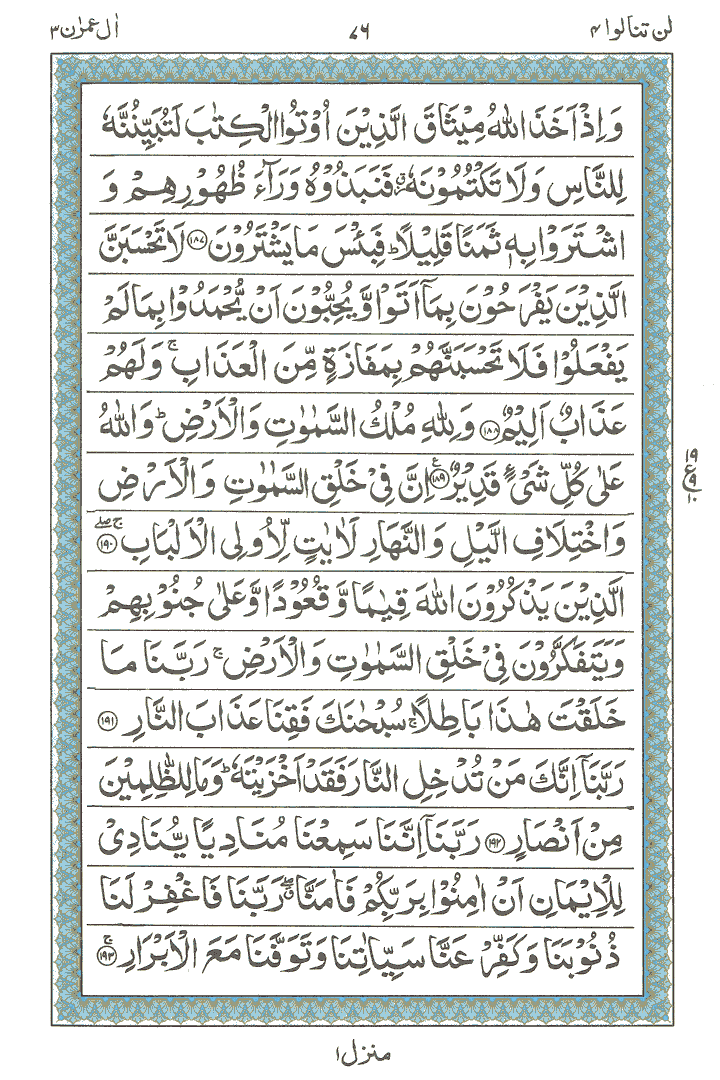 لن تنالوا ۴
۷۶
اٰل عمرٰن ۳
وَاِذْ اَخَذَ اللّٰهُ مِیْثَاقَ الَّذِیْنَ اُوْتُوا الْكِتٰبَ لَتُبَیِّنُنَّهٗ
لِلنَّاسِ وَلَا تَكْتُمُوْنَهٗ٘ فَنَبَذُوْهُ وَرَآءَ ظُهُوْرِهِمْ وَ
اشْتَرَوْا بِهٖ ثَمَنًا قَلِیْلًاؕ فَبِئْسَ مَا یَشْتَرُوْنَ ۱۸۷ لَا تَحْسَبَنَّ
الَّذِیْنَ یَفْرَحُوْنَ بِمَاۤ اَتَوْا وَّیُحِبُّوْنَ اَنْ یُّحْمَدُوْا بِمَا لَمْ
یَفْعَلُوْا فَلَا تَحْسَبَنَّهُمْ بِمَفَازَةٍ مِّنَ الْعَذَابِۚ وَلَهُمْ
عَذَابٌ اَلِیْمٌ ۱۸۸ وَلِلّٰهِ مُلْكُ السَّمٰوٰتِ وَالْاَرْضِؕ وَاللّٰهُ
عَلٰی كُلِّ شَیْءٍ قَدِیْرٌ ۱۸۹ ع اِنَّ فِیْ خَلْقِ السَّمٰوٰتِ وَالْاَرْضِ
۱۹
ع
۹
۱۰
وَاخْتِلَافِ الَّیْلِ وَالنَّهَارِ لَاٰیٰتٍ لِّاُولِی الْاَلْبَابِ ۱۹۰ۚۖ
الَّذِیْنَ یَذْكُرُوْنَ اللّٰهَ قِیٰمًا وَّقُعُوْدًا وَّعَلٰی جُنُوْبِهِمْ
وَیَتَفَكَّرُوْنَ فِیْ خَلْقِ السَّمٰوٰتِ وَالْاَرْضِۚ رَبَّنَا مَا
خَلَقْتَ هٰذَا بَاطِلًاۚ سُبْحٰنَكَ فَقِنَا عَذَابَ النَّارِ ۱۹۱
رَبَّنَاۤ اِنَّكَ مَنْ تُدْخِلِ النَّارَ فَقَدْ اَخْزَیْتَهٗؕ وَمَا لِلظّٰلِمِیْنَ
مِنْ اَنْصَارٍ ۱۹۲ رَبَّنَاۤ اِنَّنَا سَمِعْنَا مُنَادِیًا یُّنَادِیْ
لِلْاِیْمَانِ اَنْ اٰمِنُوْا بِرَبِّكُمْ فَاٰمَنَّاۗۖ رَبَّنَا فَاغْفِرْ لَنَا
ذُنُوْبَنَا وَكَفِّرْ عَنَّا سَیِّاٰتِنَا وَتَوَفَّنَا مَعَ الْاَبْرَارِ ۱۹۳ۚ
منزل ۱